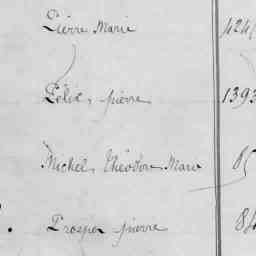 Pierre Marie 424
Felix, pierre 1393
Michel, théodore Marie 85
Prosper pierre 84